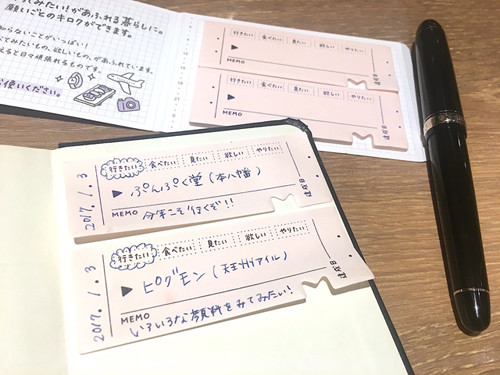 てみたい!があふれる暮らしに。
願いごとのキロクができます。
らないことがいっぱい!
てみたいもの、欲しいもの、があふれています。
えると日々頑張れるものです。
お使いください。
行きたい 食べたい 見たい 欲しい やりたい
MEMO
達成日
行きたい 食べたい 見たい 欲しい やりたい
MEMO
達成日
2017. 1. 3
行きたい 食べたい 見たい 欲しい やりたい
ぷんぷく堂(本八幡)
MEMO 今年こそ行くぞ!!
達成日
2017. 1. 3
行きたい 食べたい 見たい 欲しい やりたい
ピグモン(天王州アイル)
MEMO
いろいろな顔料をみてみたい!
達成日